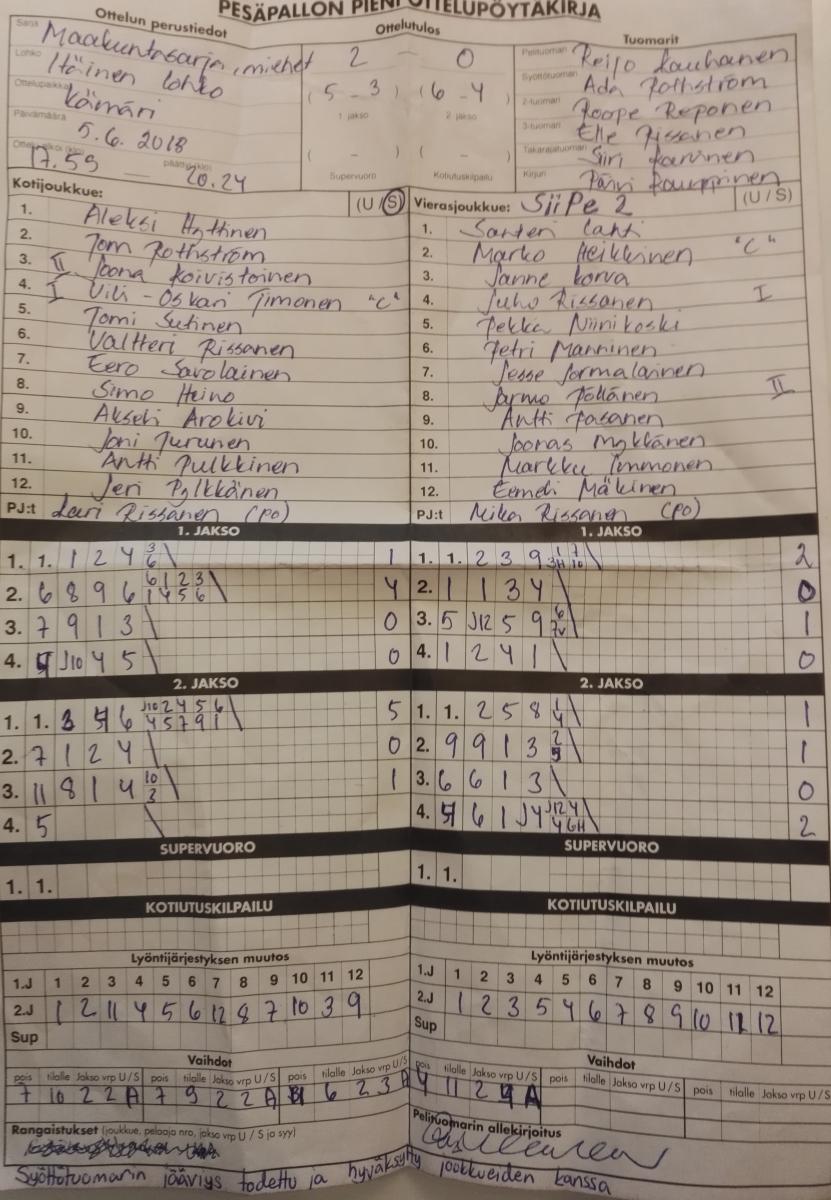 PESÄPALLON PIENI OTTELUPÖYTÄKIRJA
Ottelun perustiedot
Ottelutulos
Tuomarit
Sarja Maakuntasarja, miehet
2 — 0
Pelituoman Reijo Kauhanen
Lohko Itäinen lohko
(5 - 3) (6 - 4)
Syöttötuoman Ada Rothström
Ottelupaikka Kämäri
1 jakso 2 jakso
2-tuoman Roope Reponen
Päivämäärä 5.6.2018
3-tuoman Elle Rissanen
( - ) ( - )
Takarajatuoman Siri Karvinen
17.59 — 20.24
Supervuoro Kotiutuskilpailu
Kirjuri Päivi Kauppinen
Kotijoukkue: (U / S)
Vierasjoukkue: SiiPe 2 (U / S)
1. Aleksi Hyttinen
1. Santeri Lahti
2. Tom Rothström
2. Marko Heikkinen "C"
3. II Joona Koivistoinen
3. Janne Korva
4. I Vili-Oskari Timonen "C"
4. Juho Rissanen I
5. Tomi Sutinen
5. Pekka Niinikoski
6. Valtteri Rissanen
6. Petri Manninen
7. Eero Savolainen
7. Jesse Jormalainen
8. Simo Heino
8. Jarmo Pöllänen II
9. Akseli Arokivi
9. Antti Pasanen
10. Joni Turunen
10. Joonas Mykkänen
11. Antti Pulkkinen
11. Markku Immonen
12. Jeri Pylkkänen
12. Eemeli Mäkinen
PJ:t Lari Rissanen (PO)
PJ:t Mika Rissanen (PO)
1. JAKSO
1. JAKSO
1. 1. 1 2 4 3 6 \ 1
1. 1. 2 3 9 3H 1 7 10 \ 2
2. 6 8 9 6 6 1 2 3 1 4 5 6 \ 4
2. 1 1 3 4 \ 0
3. 7 9 1 3 \ 0
3. 5 J12 5 9 6 7v \ 1
4. J10 4 5 \ 0
4. 1 2 4 1 \ 0
2. JAKSO
2. JAKSO
1. 1. 3 5 6 J10 2 4 5 6 4 5 7 9 1 \ 5
1. 1. 2 5 8 1 4 \ 1
2. 7 1 2 4 \ 0
2. 9 9 1 3 2 9 \ 1
3. 11 8 1 4 10 3 \ 1
3. 6 6 1 3 \ 0
4. 5 \
4. 5 6 1 J4 J12 4 4 6H \ 2
SUPERVUORO
SUPERVUORO
1. 1.
1. 1.
KOTIUTUSKILPAILU
KOTIUTUSKILPAILU
Lyöntijärjestyksen muutos
Lyöntijärjestyksen muutos
1.J 1 2 3 4 5 6 7 8 9 10 11 12
1.J 1 2 3 4 5 6 7 8 9 10 11 12
2.J 1 2 11 4 5 6 12 8 7 10 3 9
2.J 1 2 3 5 4 6 7 8 9 10 11 12
Sup
Sup
Vaihdot
Vaihdot
pois tilalle Jakso vrp U / S pois tilalle Jakso vrp U / S pois tilalle Jakso vrp U / S
pois tilalle Jakso vrp U / S pois tilalle Jakso vrp U / S pois tilalle Jakso vrp U / S
7 10 2 2 A 7 9 2 2 A 6 2 3 A
4 11 2 4 A
Rangaistukset (joukkue, pelaaja nro, jakso vrp U / S ja syy)
Pelituomarin allekirjoitus
Syöttötuomarin jääviys todettu ja hyväksytty joukkueiden kanssa